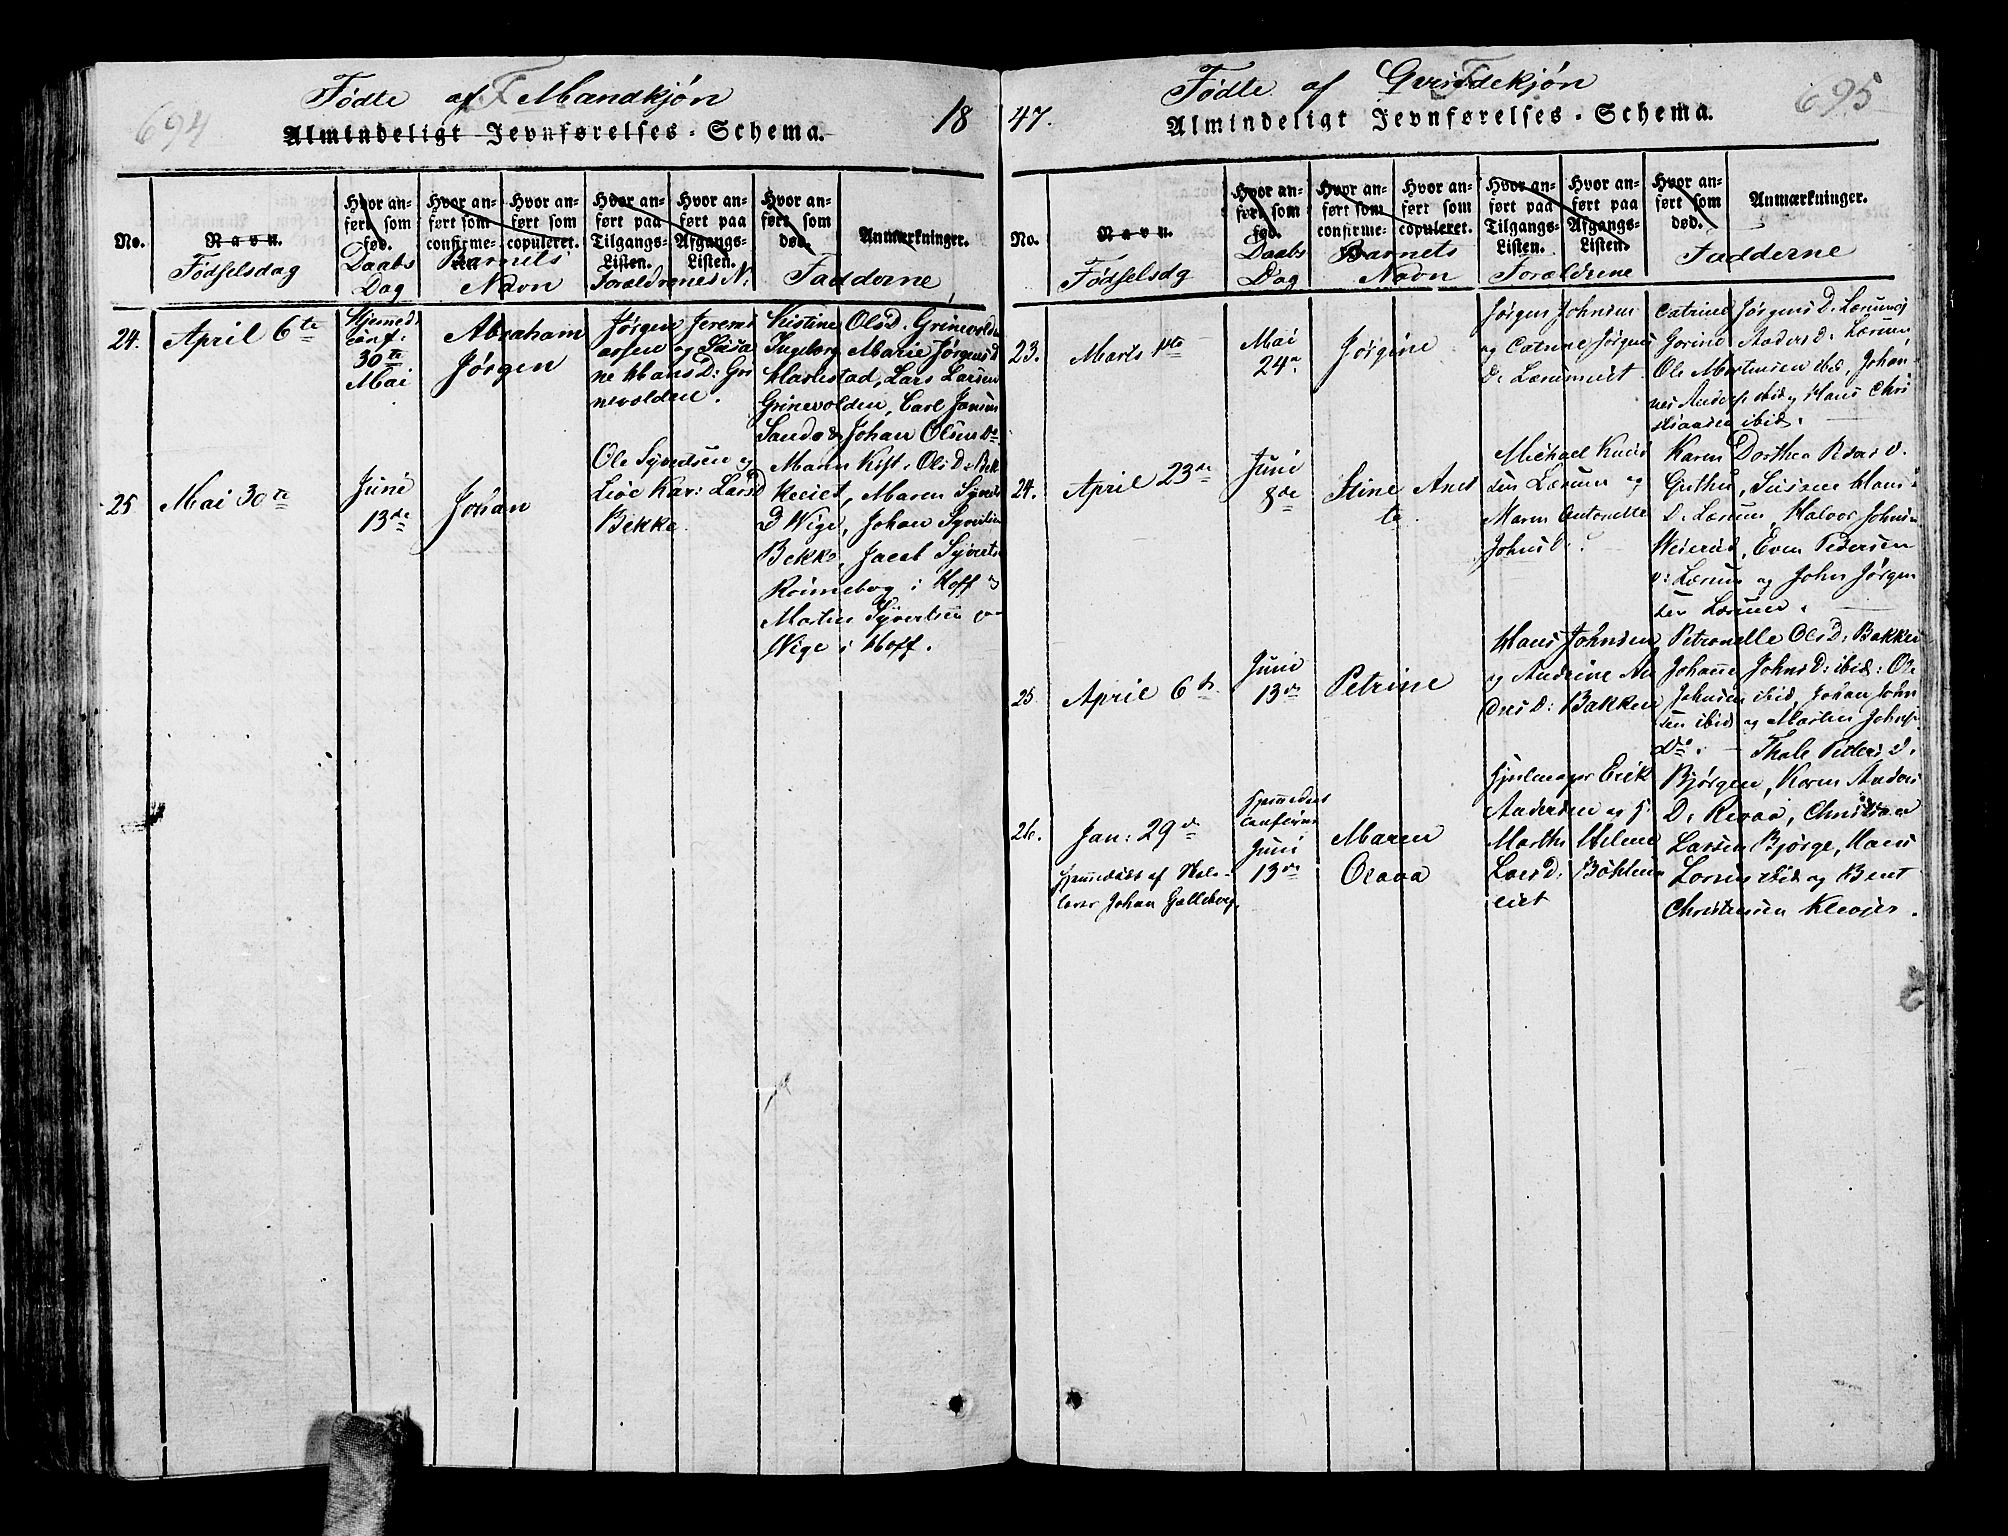 694
Fødte af Mandkjøn
18
Almindeligt Jevnførelses-Schema.
No.
Navn.
Fødselsdag
Hvor anført som fød.
Daabs Dag
Hvor anført som confirmeret
Hvor anført som copuleret.
Barnets Navn
Hvor anført paa Tilgangs-Listen.
Hvor anført paa Afgangs-Listen.
Forældrenes N:
Hvor anført som død.
Anmærkninger.
Fadderne
24.
April 6te
Hjemed:
conf:
30te
Mai
Abraham
Jørgen
Jørgen Jeremi
assen og Susa
ne Hans D: Gri
nevolden.
Kistine Ols D. Grinevolden
Ingeborg Marie Jørgens D
Harlestad, Lars Larsen
Grinevolden, Carl Jansen
Sando & Johan Olsen Do
25
Mai 30te
Juni
13de
Johan
Ole Syvertsen og
Lise Kar: Lars D
Bekke
Maren Kist: Ols D: Bek
keeiet, Maren Syverts
D Wige, Johan Syvertsen
Bekke, Jacob Syverts
Rønneberg i Hoff og
Martin Syvertsen
Wige i Hoff.
695
Fødte af Qvindekjøn
47.
Almindeligt Jevnførelses-Schema.
No.
Navn.
Fødselsdg
Hvor anført som fød.
Daabs Dag
Hvor anført som confirme-
Hvor anført som copuleret.
Barnets Navn
Hvor anført paa Tilgangs-Listen.
Hvor anført paa Afgangs-Listen.
Forældrene
Hvor anført som død.
Anmærkninger.
Fadderne
23.
Marts 1ste
Mai
24de
Jørgine
Jørgen Johnsen
og Catrine Jørgens
D: Lærumeiet
Catrine Jørgens D. Lærumej
Gorine Anders D: Lærum,
Ole Mortensen ibid, Johan
nes Anders ibid og Hans Chri
stiansen ibid.
24.
April 23de
Juni
8de
Stine Anet
te
Michael Knud
sen Lærum og
Maren Antonette
Johns D.
Karen Dorthea Peders D.
Guthu, Susanne Hans
D: Lærum, Halvor Johnsen
Weierud, Even Pedersen
v: Lærum og John Jørgen
sen Lærum.
25.
April 6te
Juni
13de
Petrine
Hans Johnsen
og Andrine An
dres D: Bakken
Petronelle Ols D: Bakken
Johanne Johns D: ibid: Ole
Johnsen ibid, Johan John
sen ibid og Martin Johns
Do.
26.
Jan: 29de
Hjemmedøbt af Skole-
lærer Johan Galleberg.
Hjemmedøbt
confirm
Juni
13de
Maren
Olava
Hjulmager Erik
Andersen og H:
Marthe Helene
Lars D: Böhlum
eiet
Thale Peders D.
Bjørgen, Karen Anders
D: Revaa, Christian
Larsen Bjørge, Hans
Larsen ibid og Bent
Christensen Klevjer.